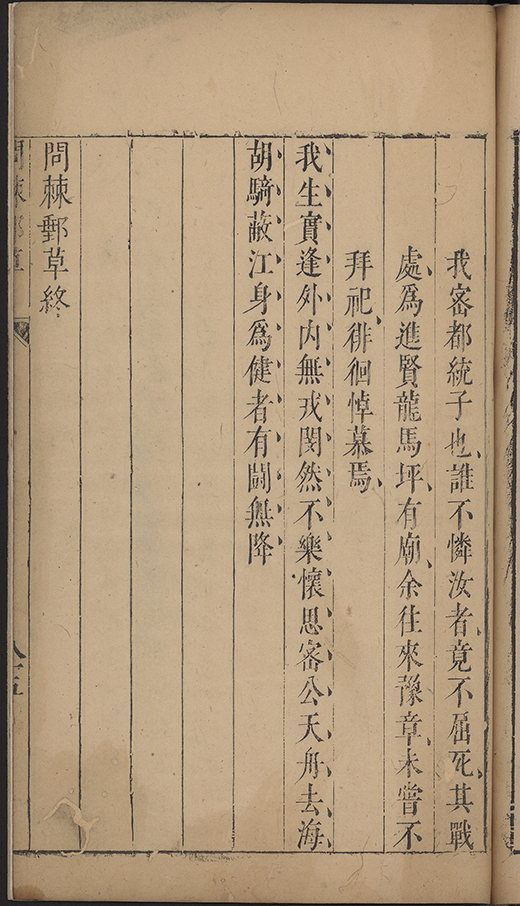 我密都統子也誰不憐汝者竟不屈死其戰
處為進賢龍馬坪有廟余往來豫章未嘗不
拜祀徘徊悼慕焉
我生實逢外內無戎閔然不樂懷思密公天舟去海
胡騎蔽江身為健者有鬪無降
問棘郵草終
問棘郵草